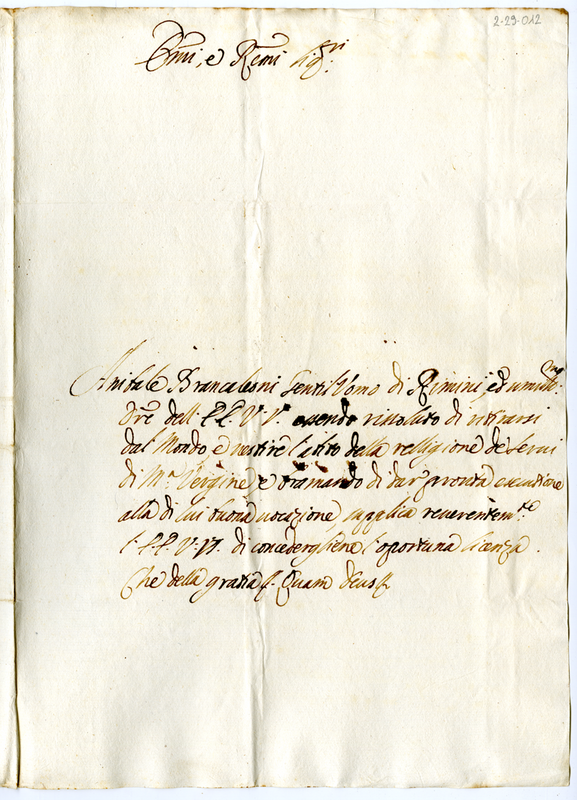 2-29-012
Emi, e Remi Sigri
Anibale Brancaleoni Gentil Uomo di Rimini, ed umilmo
Ore dell' EE. VV. essendo rissoluto di ritirarsi
dal Mondo e vestire l'abito della relligione de Servi
di Ma Vergine, e bramando di dar pronta esecutione
alla di lui buona vocazione, supplica reverentemte
l' EE. VV. di concedergliene l'oportuna licenza.
Che della gratia &. Quam Deus &